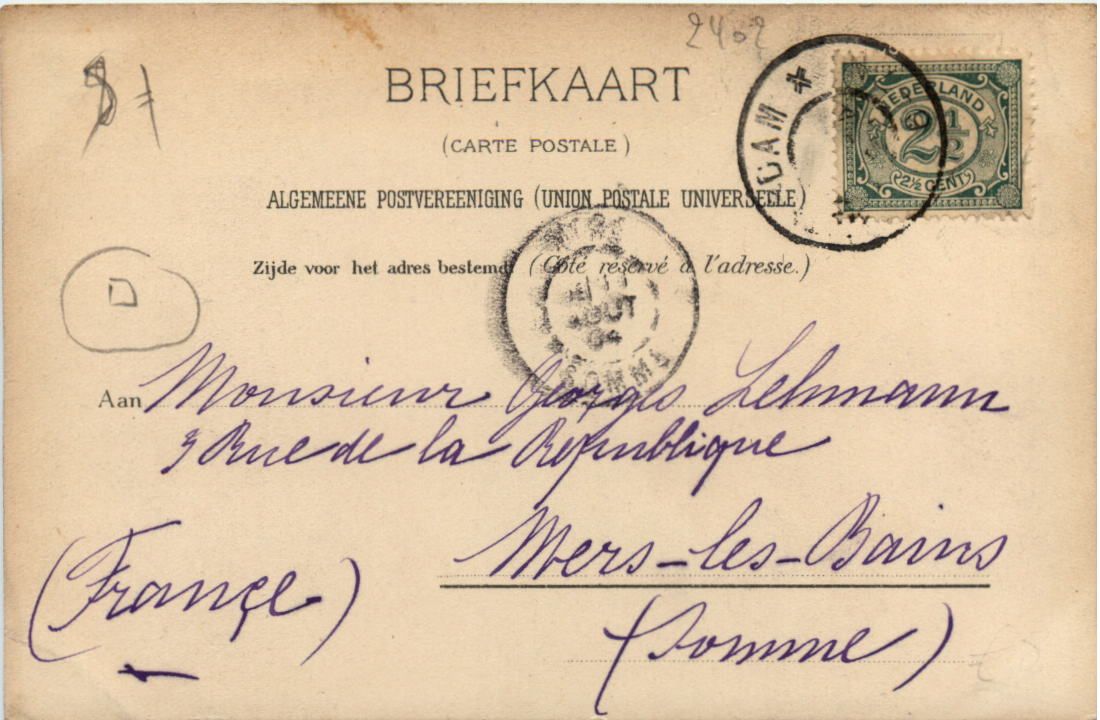 2402
BRIEFKAART
(CARTE POSTALE)
ALGEMEENE POSTVEREENIGING (UNION POSTALE UNIVERSELLE)
Zijde voor het adres bestemd. (Côté réservé à l'adresse.)
NEDERLAND
2½
2½ CENT
DAM
SOMME
Aan Monsieur Georges Lehmann
3 Rue de la République
Mers-les-Bains
(Somme)
(France)